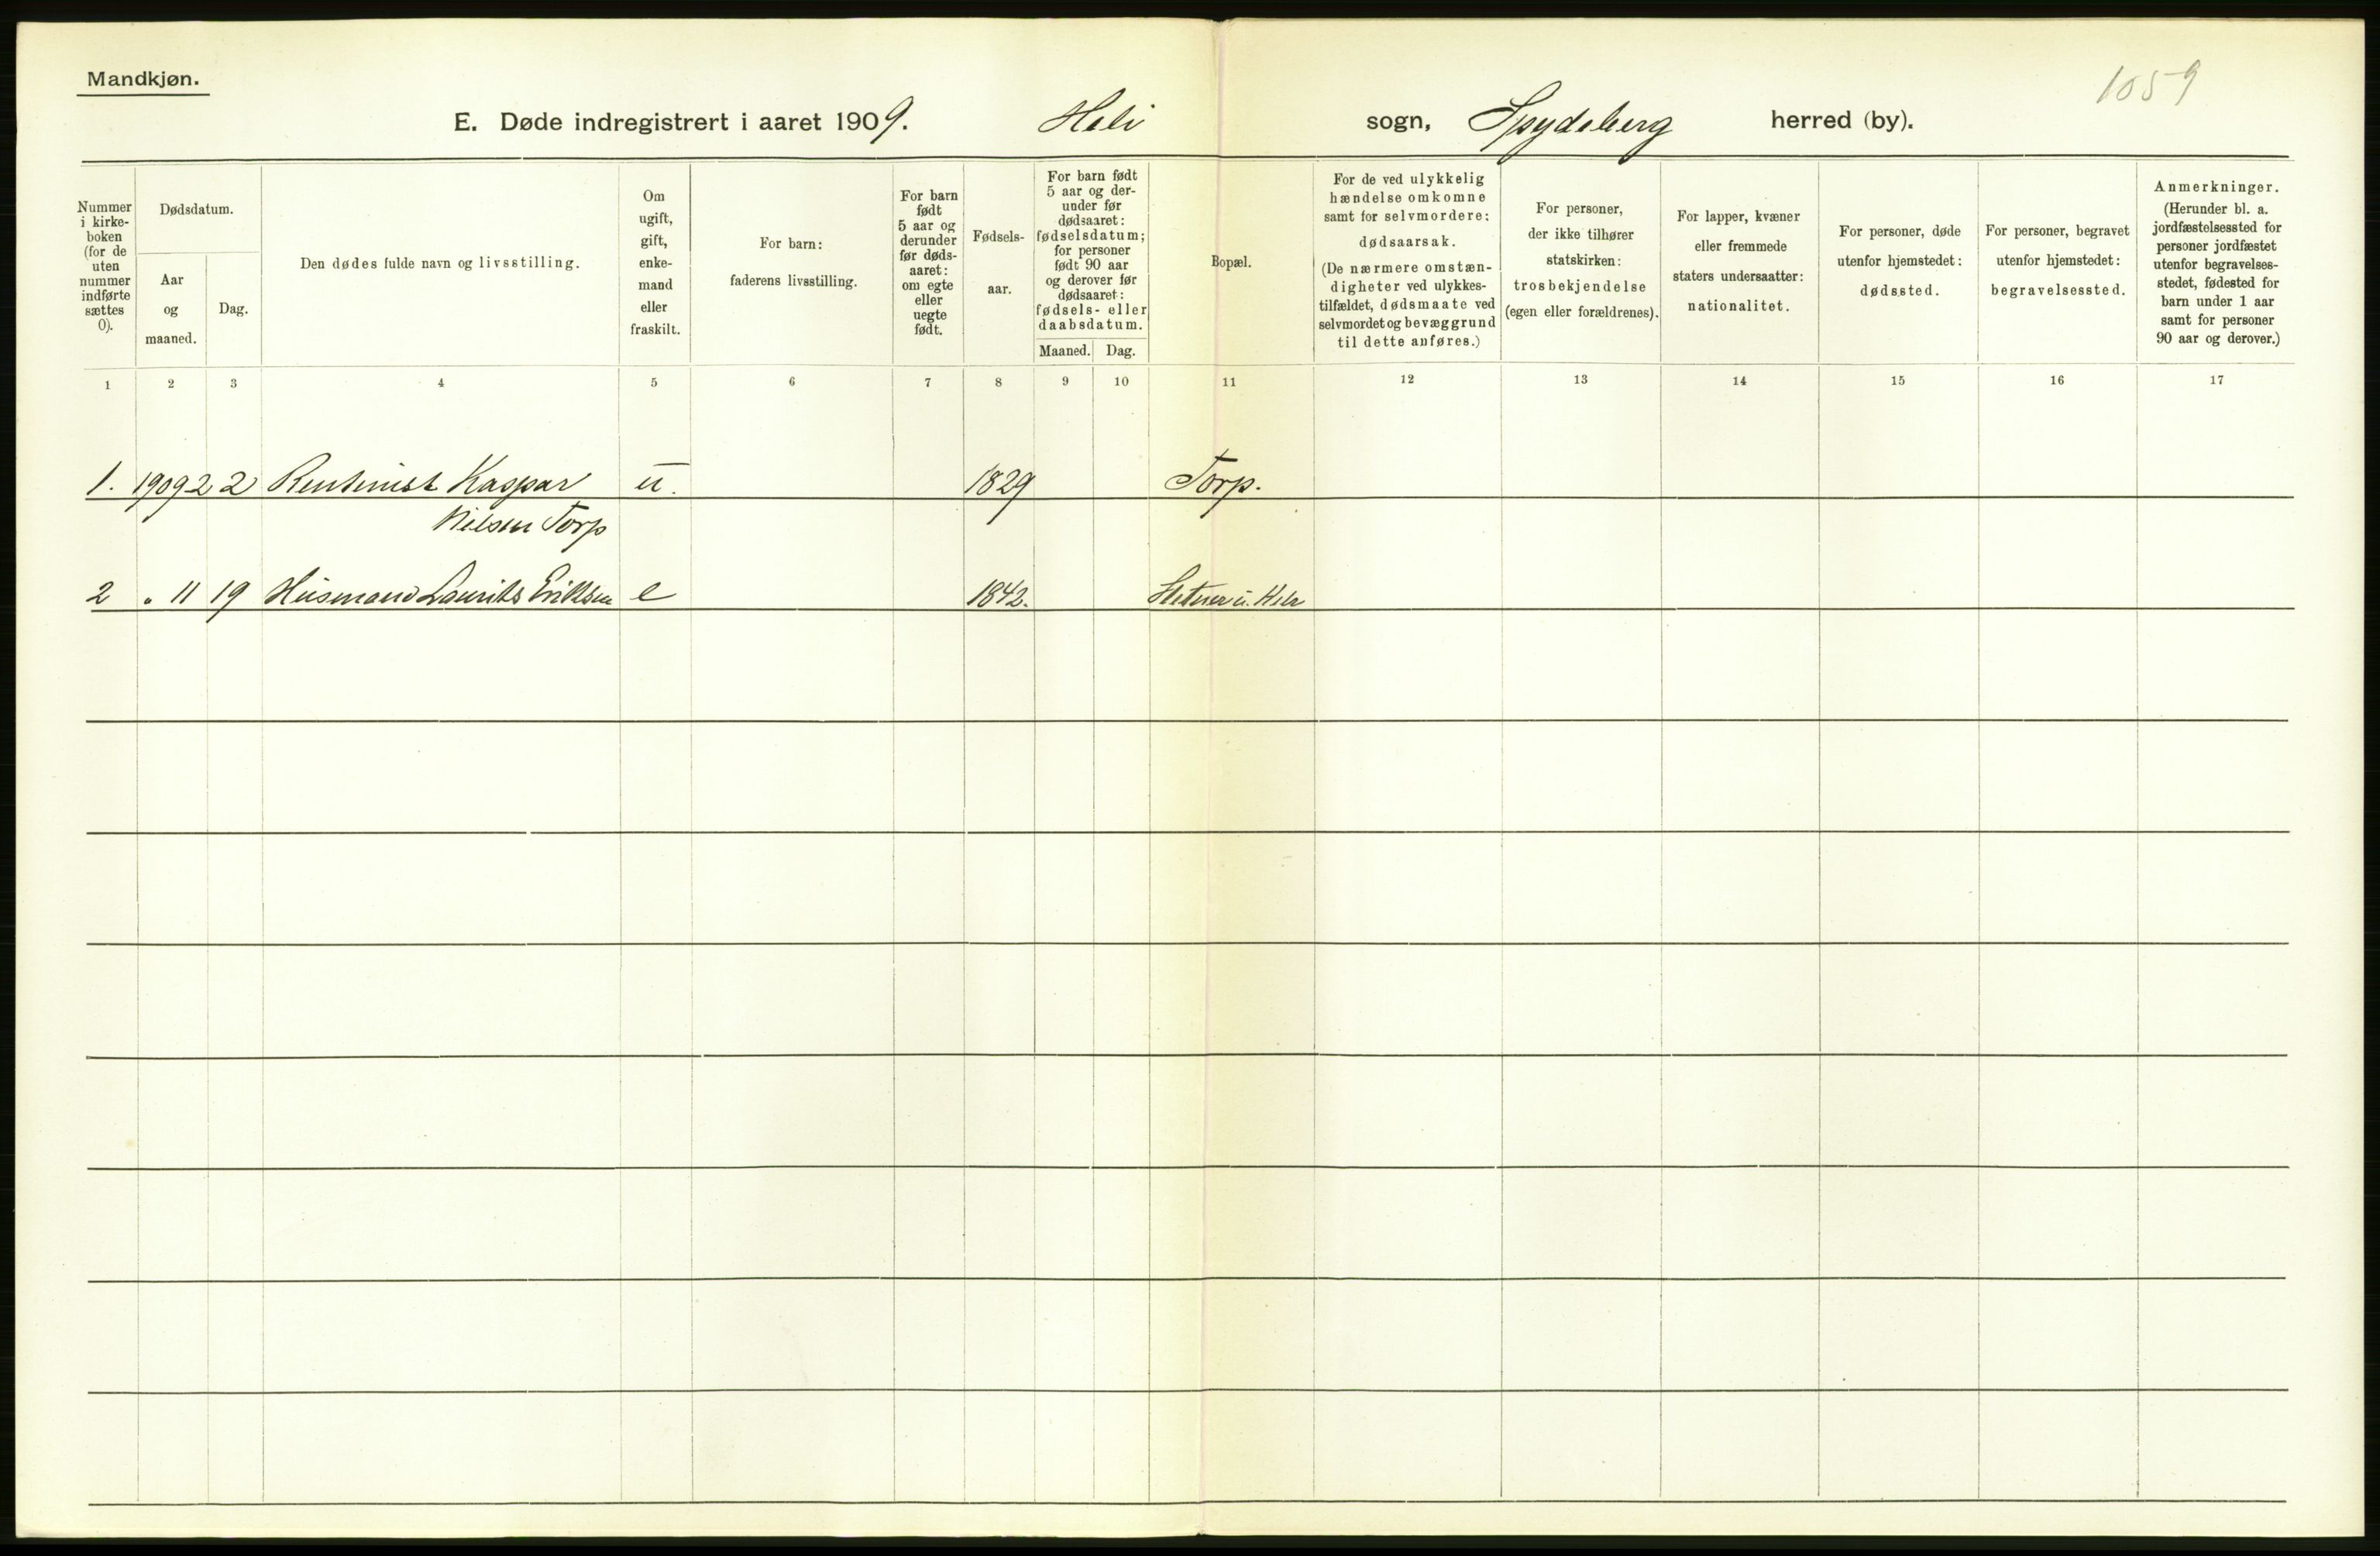 Mandkjøn.
1059
E. Døde indregistrert i aaret 1909. Heli sogn, Spydeberg herred (by).
Nummer
i kirke-
boken
(for de
uten
nummer
indførte
sættes
0).
Dødsdatum.
Aar
og
maaned.
Dag.
Den dødes fulde navn og livsstilling.
Om
ugift,
gift,
enke-
mand
eller
fraskilt.
For barn:
faderens livsstilling.
For barn
født
5 aar og
derunder
før døds-
aaret:
om egte
eller
uegte
født.
Fødsels-
aar.
For barn født
5 aar og der-
under før
dødsaaret:
fødselsdatum;
for personer
født 90 aar
og derover før
dødsaaret:
fødsels- eller
daabsdatum.
Maaned. Dag.
Bopæl.
For de ved ulykkelig
hændelse omkomne
samt for selvmordere:
dødsaarsak.
(De nærmere omstæn-
digheter ved ulykkes-
tilfældet, dødsmaate ved
selvmordet og bevæggrund
til dette anføres.)
For personer,
der ikke tilhører
statskirken:
trosbekjendelse
(egen eller forældrenes).
For lapper, kvæner
eller fremmede
staters undersaatter:
nationalitet.
For personer, døde
utenfor hjemstedet:
dødssted.
For personer, begravet
utenfor hjemstedet:
begravelsessted.
Anmerkninger.
(Herunder bl. a.
jordfæstelsessted for
personer jordfæstet
utenfor begravelses-
stedet, fødested for
barn under 1 aar
samt for personer
90 aar og derover.)
1 2 3 4 5 6 7 8 9 10 11 12 13 14 15 16 17
1. 1909 2 2 Rentenist Kaspar u. 1829 Torp.
Nilsen Torp
2 " 11 19 Husmand Laurits Eriksen e 1842. u. Heli